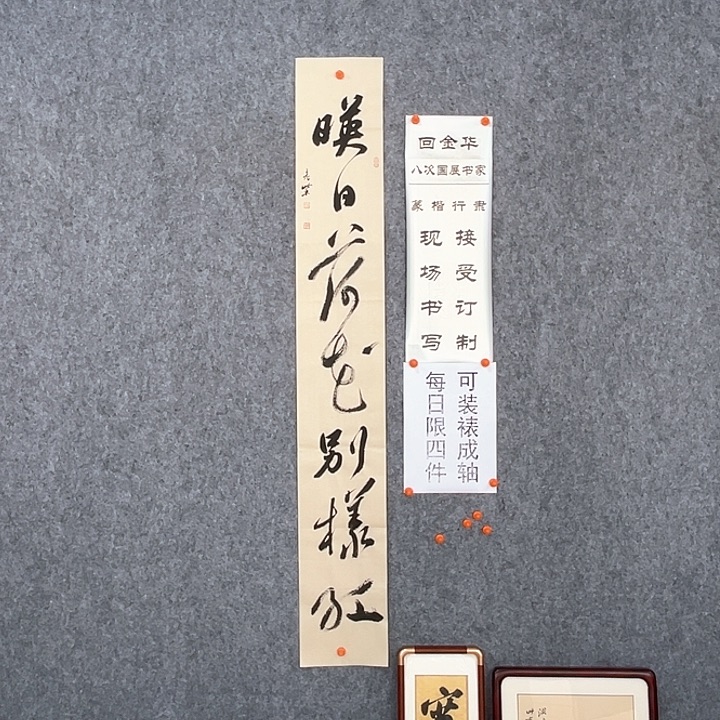 暎日荷花别樣紅
回金华
八次国展书家
篆楷行隶
接受订制
现场书写
可装裱成轴
每日限四件